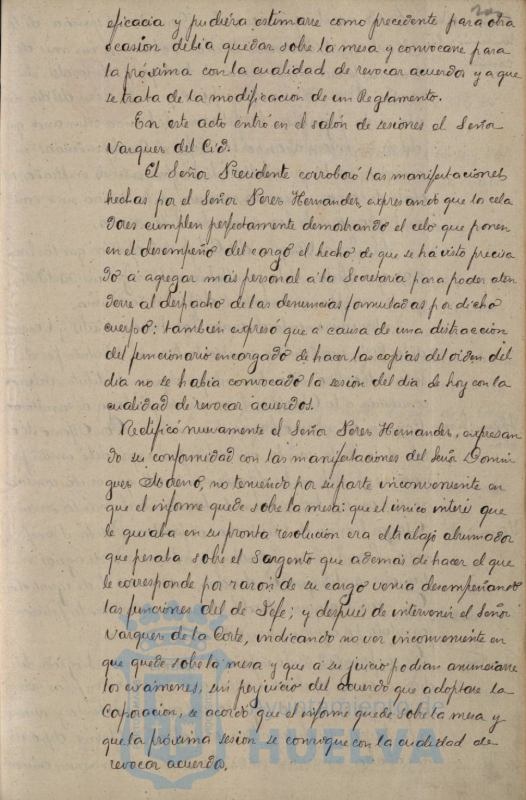 eficacia y pudiera estimarse como precedente para otra
ocasion debia quedar sobre la mesa y convocarse para
la próxima con la cualidad de revocar acuerdos ya que
se trata de la modificación de un Reglamento.
En este acto entró en el salón de sesiones el Señor
Vazquez del Cid.
El Señor Presidente corroboró las manifestaciones
hechas por el Señor Perez Hernandez, expresando que los cela
dores cumplen perfectamente demostrando el celo que ponen
en el desempeño del cargo el hecho de que se há visto precisa
do á agregar más personal á la Secretaria para poder aten
derse al despacho de las denuncias formuladas por dicho
cuerpo: también expresó que á causa de una distracción
del funcionario encargado de hacer las copias del orden del
dia no se habia convocado la sesión del dia de hoy con la
cualidad de revocar acuerdos.
Rectificó nuevamente el Señor Perez Hernandez, expresan
do su conformidad con las manifestaciones del Señor Domin
guez, no teniendo por su parte inconveniente en
que el informe quede sobre la mesa: que el único interés que
le guiaba en su pronta resolución era el trabajo abrumador
que pesaba sobre el Sargento que además de hacer el que
le corresponde por razón de su cargo venia desempeñando
las funciones del de Jefe; y después de intervenir el Señor
Vazquez de la Corte, indicando no ver inconveniente en
que quede sobre la mesa y que á su juicio podian anunciarse
los exámenes, sin perjuicio del acuerdo que adoptase la
Coporación, se acordó que el informe quede sobre la mesa y
que la próxima sesión se convoque con la cualidad de
revocar acuerdos.
Ayuntamiento de
HUELVA